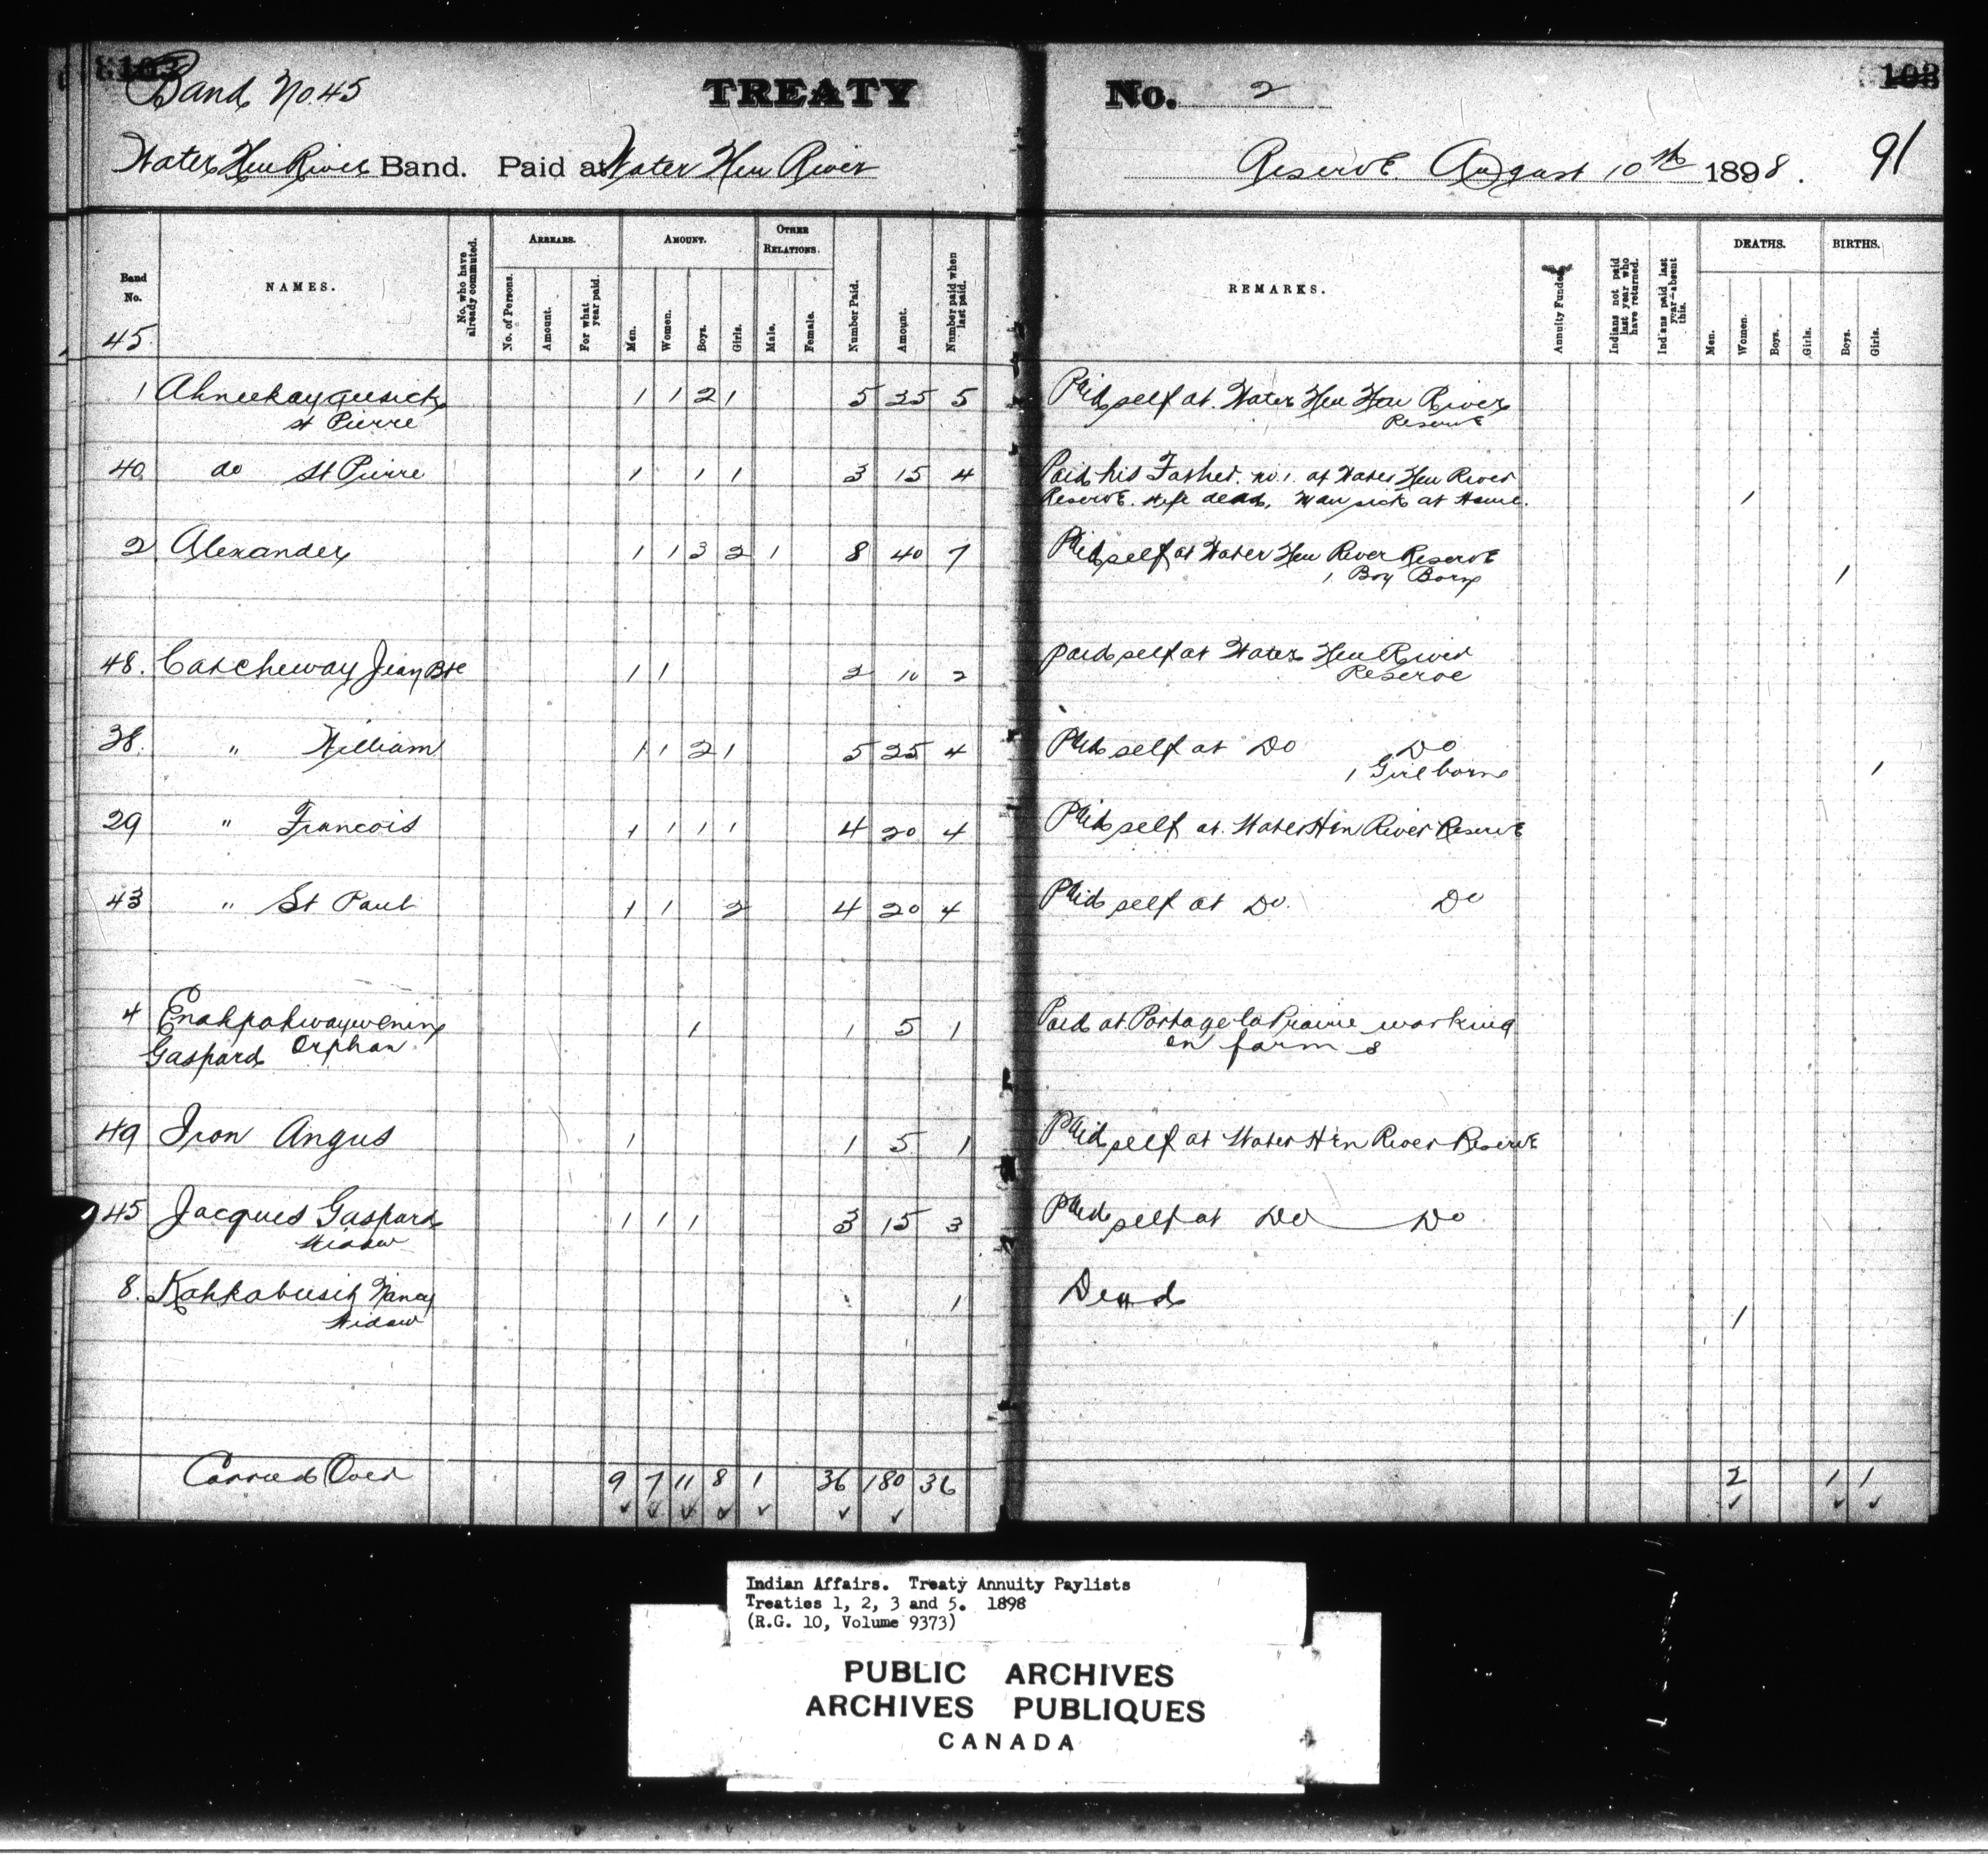 103
Band No 45 TREATY No. 2 103
Water Hen River Band. Paid at Water Hen River Reserve August 10th 1898. 91
Band No. 45
NAMES.
No. who have already commuted.
ARREARS.
No. of Persons.
Amount.
For what year paid.
AMOUNT.
Men.
Women.
Boys.
Girls.
OTHER RELATIONS.
Male.
Female.
Number Paid.
Amount.
Number paid when last paid.
REMARKS.
Annuity Funded.
Indians not paid last year who have returned.
Indians paid last year—absent this.
DEATHS.
Men.
Women.
Boys.
Girls.
BIRTHS.
Boys.
Girls.
1 1 1 2 1 5 25 5 Paid self at Water Hen Hen River
St Pierre Reserve
40 do St Pierre 1 1 1 3 15 4 Paid his Father no. 1. at Water Hen River
Reserve. Wife dead, Man sick at Home. 1
2 Alexander 1 1 3 2 1 8 40 7 Paid self at Water Hen River Reserve
1 Boy Born 1
48. Catcheway Jean Bte 1 1 2 10 2 Paid self at Water Hen River
Reserve
38. " William 1 1 2 1 5 25 4 Paid self at Do Do
1 Girl born 1
29 " Francois 1 1 1 1 4 20 4 Paid self at Water Hen River Reserve
43 " St Paul 1 1 2 4 20 4 Paid self at Do. Do
4 Enahpahwaywenin 1 1 5 1 Paid at Portage la Prairie working
Gaspard Orphan on farm
49 Iron Angus 1 1 5 1 Paid self at Water Hen River Reserve
45 Jacques Gaspard 1 1 1 3 15 3 Paid self at Do Do
Widow
8. Kahkabusih Nancy 1 Dead
Widow 1
Carried Over 9 7 11 8 1 36 180 36 2 1 1
Indian Affairs. Treaty Annuity Paylists
Treaties 1, 2, 3 and 5. 1898
(R.G. 10, Volume 9373)
PUBLIC ARCHIVES
ARCHIVES PUBLIQUES
CANADA